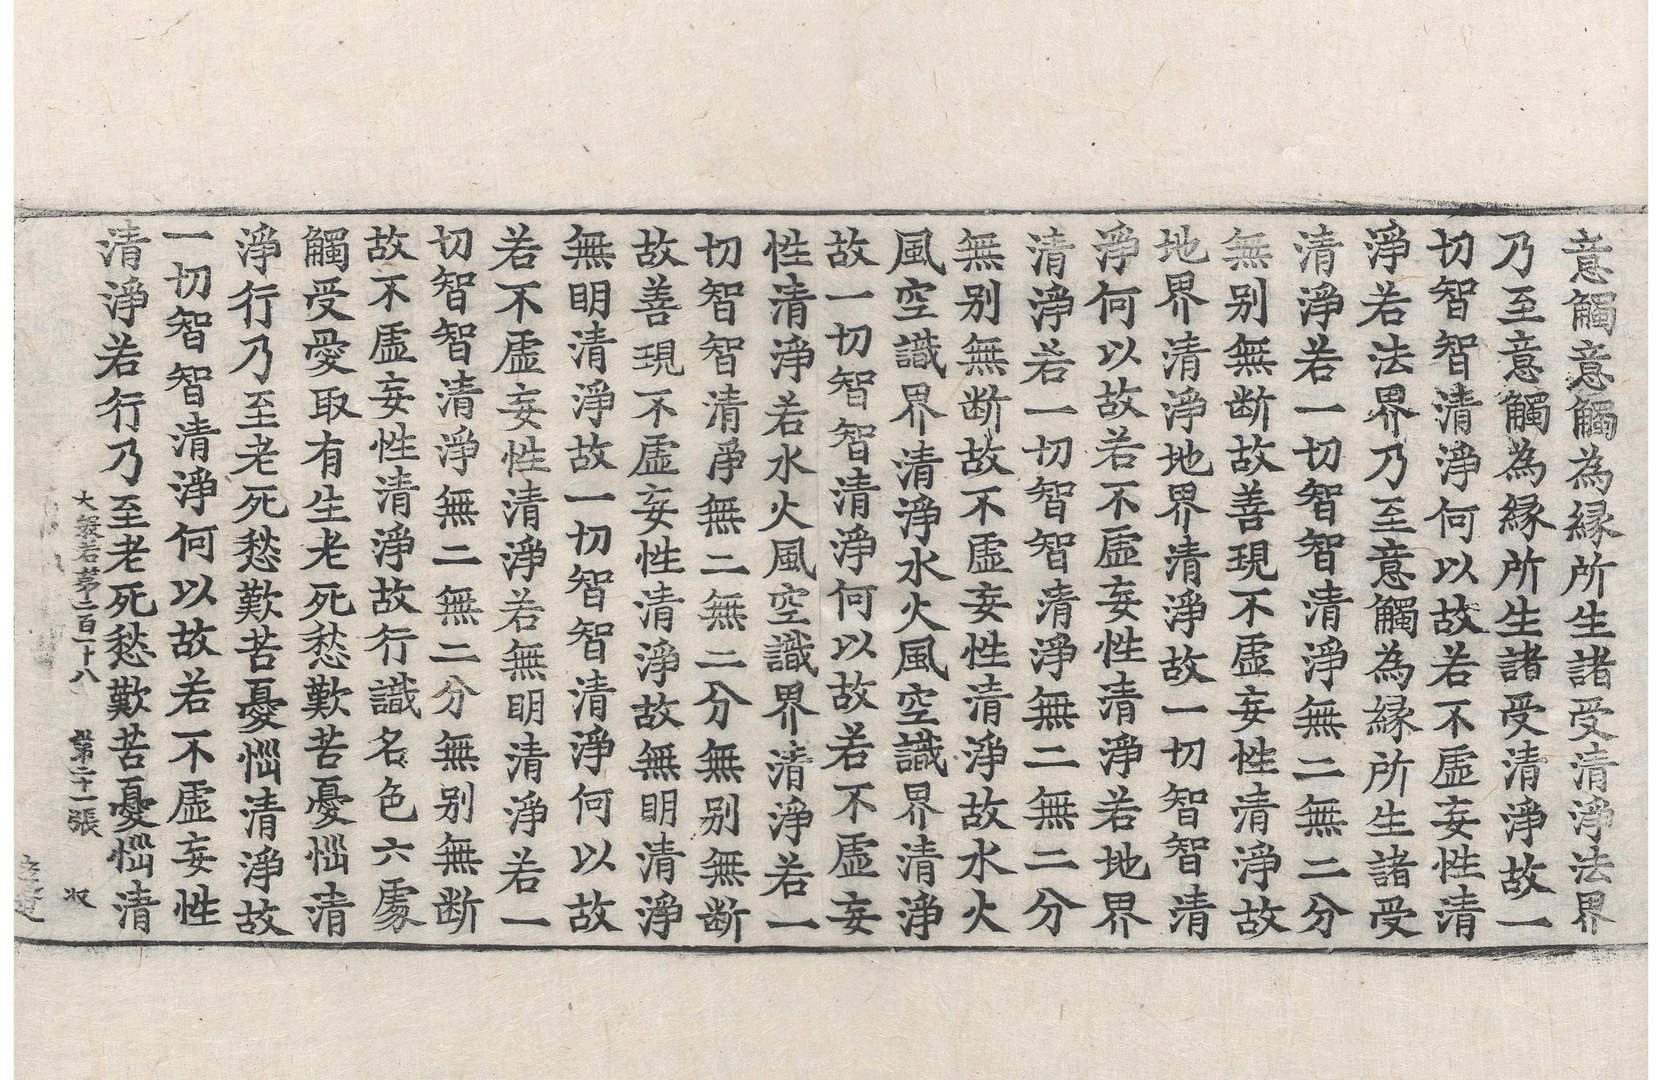 意觸意觸為縁所生諸受清淨法界
乃至意觸為縁所生諸受清淨故一
切智智清淨何以故若不虛妄性清
淨若法界乃至意觸為縁所生諸受
清淨若一切智智清淨無二無二分
無别無断故善現不虛妄性清淨故
地界清淨地界清淨故一切智智清
淨何以故若不虛妄性清淨若地界
清淨若一切智智清淨無二無二分
無别無断故不虛妄性清淨故水火
風空識界清淨水火風空識界清淨
故一切智智清淨何以故若不虛妄
性清淨若水火風空識界清淨若一
切智智清淨無二無二分無别無断
故善現不虛妄性清淨故無明清淨
無明清淨故一切智智清淨何以故
若不虛妄性清淨若無明清淨若一
切智智清淨無二無二分無别無断
故不虛妄性清淨故行識名色六處
觸受愛取有生老死愁歎苦憂惱清
淨行乃至老死愁歎苦憂惱清淨故
一切智智清淨何以故若不虛妄性
清淨若行乃至老死愁歎苦憂惱清
大般若第二百一十八 第二十一張 收